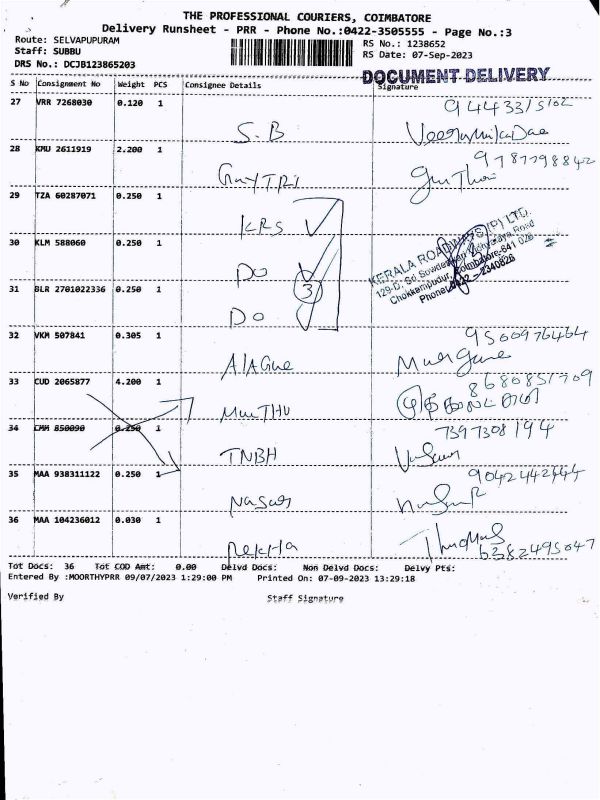 THE PROFESSIONAL COURIERS, COIMBATORE
Delivery Runsheet - PRR - Phone No.:0422-3505555 - Page No.:3
Route: SELVAPUPURAM
RS No.: 1238652
Staff: SUBBU
RS Date: 07-Sep-2023
DRS No.: DCJB123865203
DOCUMENT DELIVERY
S No Consignment No Weight PCS Consignee Details Signature
27 VRR 7268030 0.120 1 S.B
28 KMU 2611919 2.200 1 9787798842
29 TZA 60287071 0.250 1 KRS
30 KLM 588060 0.250 1 DO
31 BLR 2701022336 0.250 1 DO
3
KERALA ROADWAYS (P) LTD.
129-D, Sri Sowdeswari Vidhyalaya Road
Chokkampudur, Coimbatore-641 026
Phone: 0422 - 2340826
32 VKM 507841 0.305 1 9500976464
33 CUD 2065877 4.200 1 MUUTHU 8680851709
34 CMM 850090 0.250 1 TNBH 7397308194
35 MAA 938311122 0.250 1 9042442444
36 MAA 104236012 0.030 1 REKHA 6382495047
Tot Docs: 36 Tot COD Amt: 0.00 Delvd Docs: Non Delvd Docs: Delvy Pts:
Entered By :MOORTHYPRR 09/07/2023 1:29:00 PM Printed On: 07-09-2023 13:29:18
Verified By Staff Signature